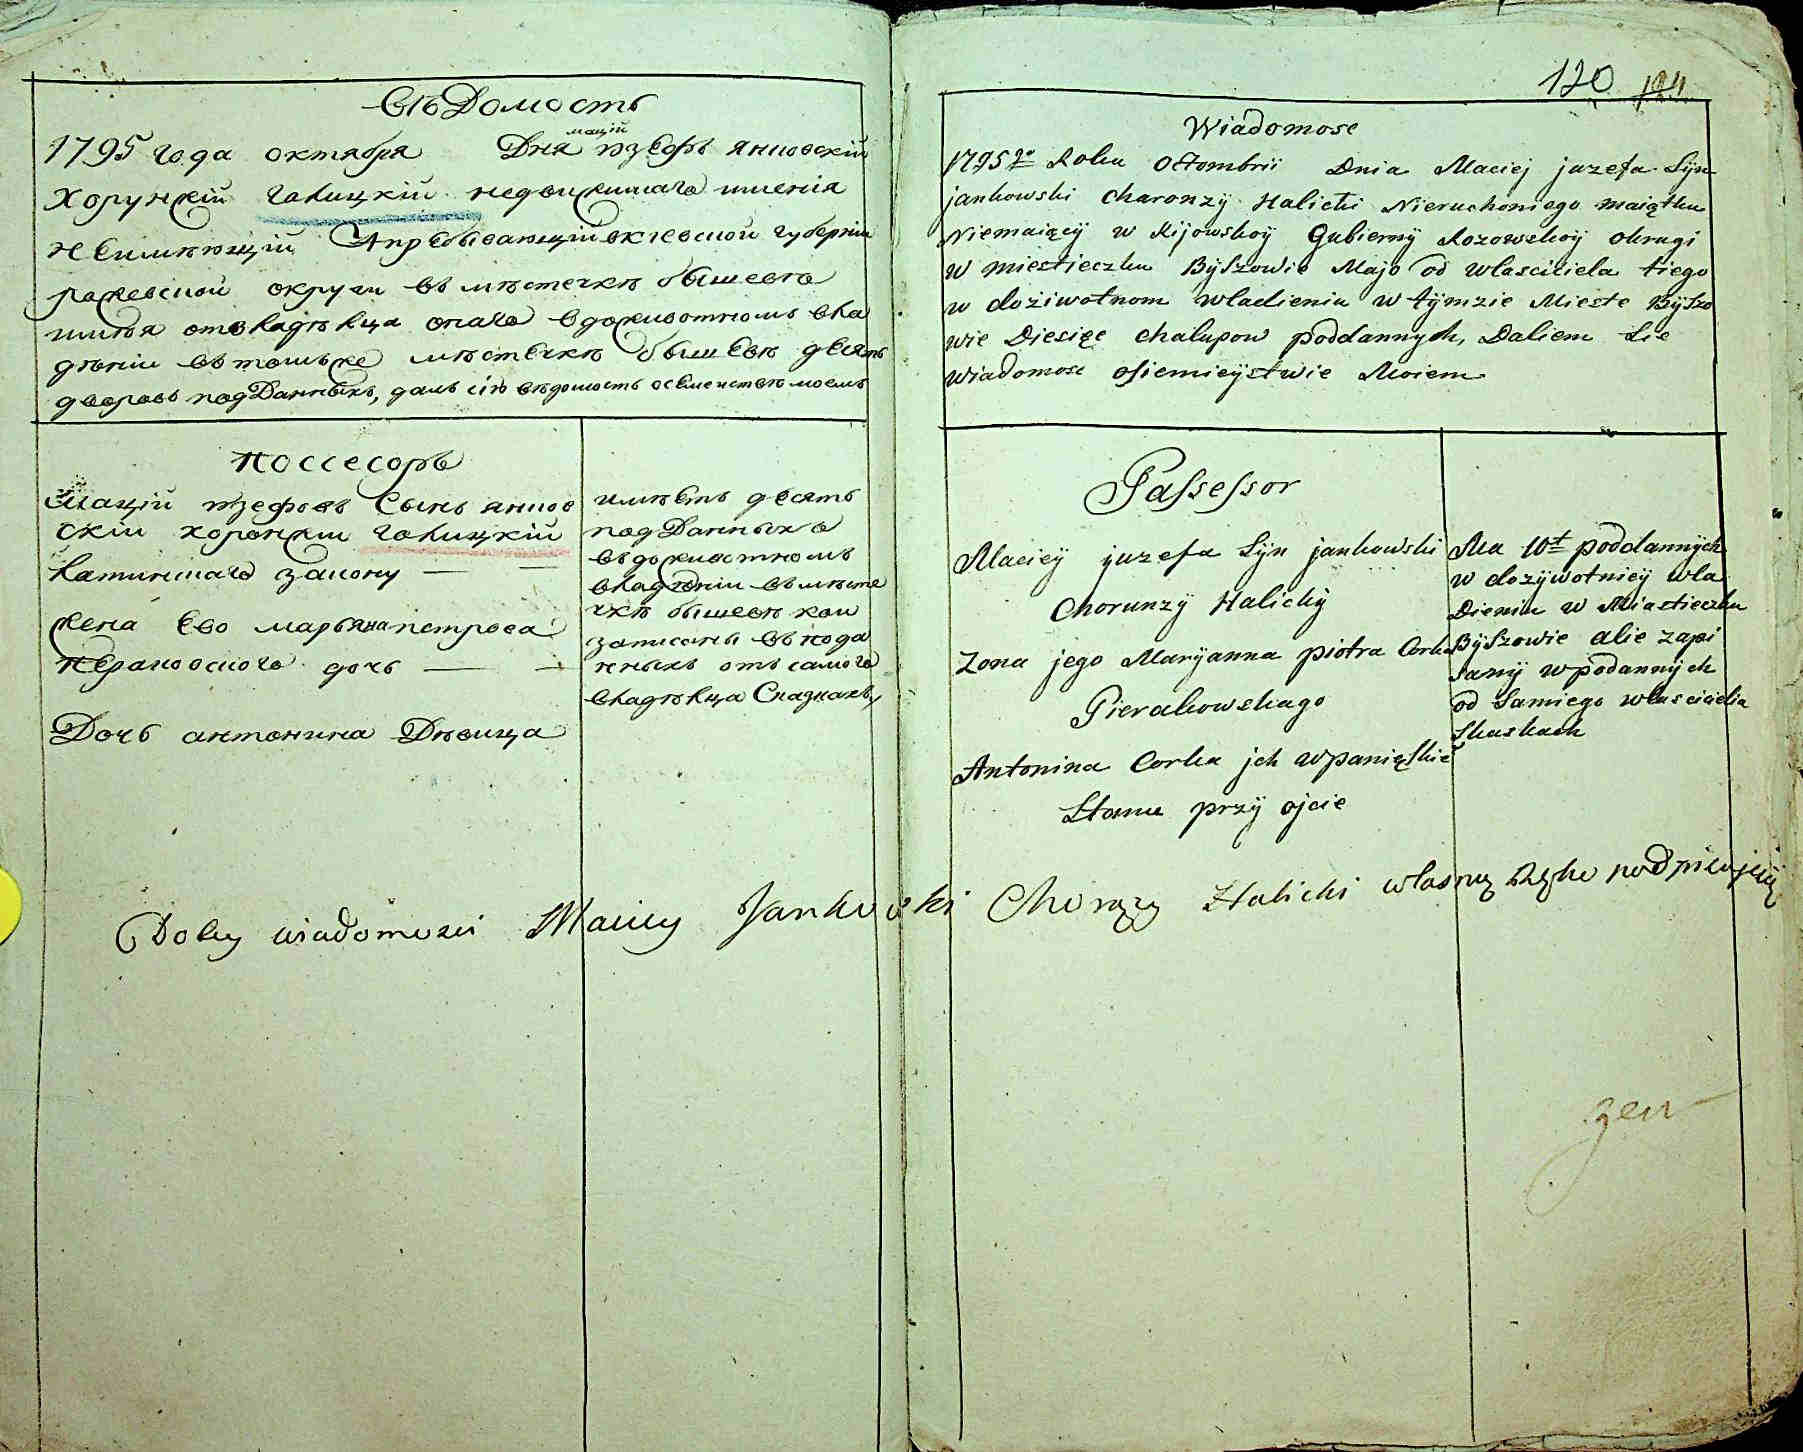 Вѣдомость
1795 года октября Дня мацій юзефъ янковскій
Хорунжій галицкій недвижимаго имѣнія
неимѣющій Апребывающій вкіевской губерніи
рожевской округи въ мѣстечкѣ бышевѣ
имѣя отвладѣльца онаго вдоживотномъ вла
дѣніи въ томъже мѣстечкѣ бышевѣ десять
дворовъ подданныхъ, далъ сію вѣдомость осемействѣ моемъ
поссесоръ
мацій юзефовъ Сынъ янков
скій хоронжій галицкій
латинскаго закону
жена Ево марьяна петрова
пераковского дочь
Дочь антонина Дѣвица
имѣетъ десять
подданныхъ
въдоживотномъ
владѣніи въмѣсте
чкѣ бышевѣ кои
записаны въ пода
нныхъ отъ самого
владѣльца Сказкахъ,
120
Wiadomosc
1795go Roku Octombrii Dnia Maciej juzefa Syn
jankowski charonzÿ Halicki Nieruchomego maiątku
Niemaiącÿ w Kijowskoÿ Gubiernÿ Rozowskoÿ okrugi
w miestieczku Byszowie Majo od wlasciciela tiego
w dożiwotnom wladieniu w tÿmzie Mieste Byszo
wie Diesięc chalupow poddannych, Daliem Sie
wiadomosc osiemieÿstwie Moiem
Passessor
Macieÿ juzefa Syn jankowski
chorunzÿ Halickÿ
Zona jego Marÿanna piotra Corka
Pierakowskago
Antonina Corka jch wpanięskiĕ
Stanu przÿ ojcie
Ma 10t poddannych
w dozÿwotnieÿ wla
Dieniu w Miastieczku
Bÿszowie alie zapi
sanÿ wpodannÿch
od Samiego wlascicielia
Skaskach
Doley wiadomosci Maciey Jankowski Chorąży Halicki własną Ręko podpisujeię